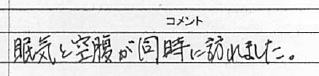 コメント
眠気と空腹が同時に訪れました。